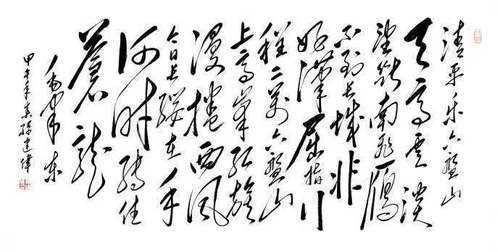 清平乐六盘山
天高云淡
望断南飞雁
不到长城非
好漢屈指行
程二万六盘山
上高峰红旗
漫捲西风
今日长缨在手
何时缚住
蒼龍
毛
甲午年建偉